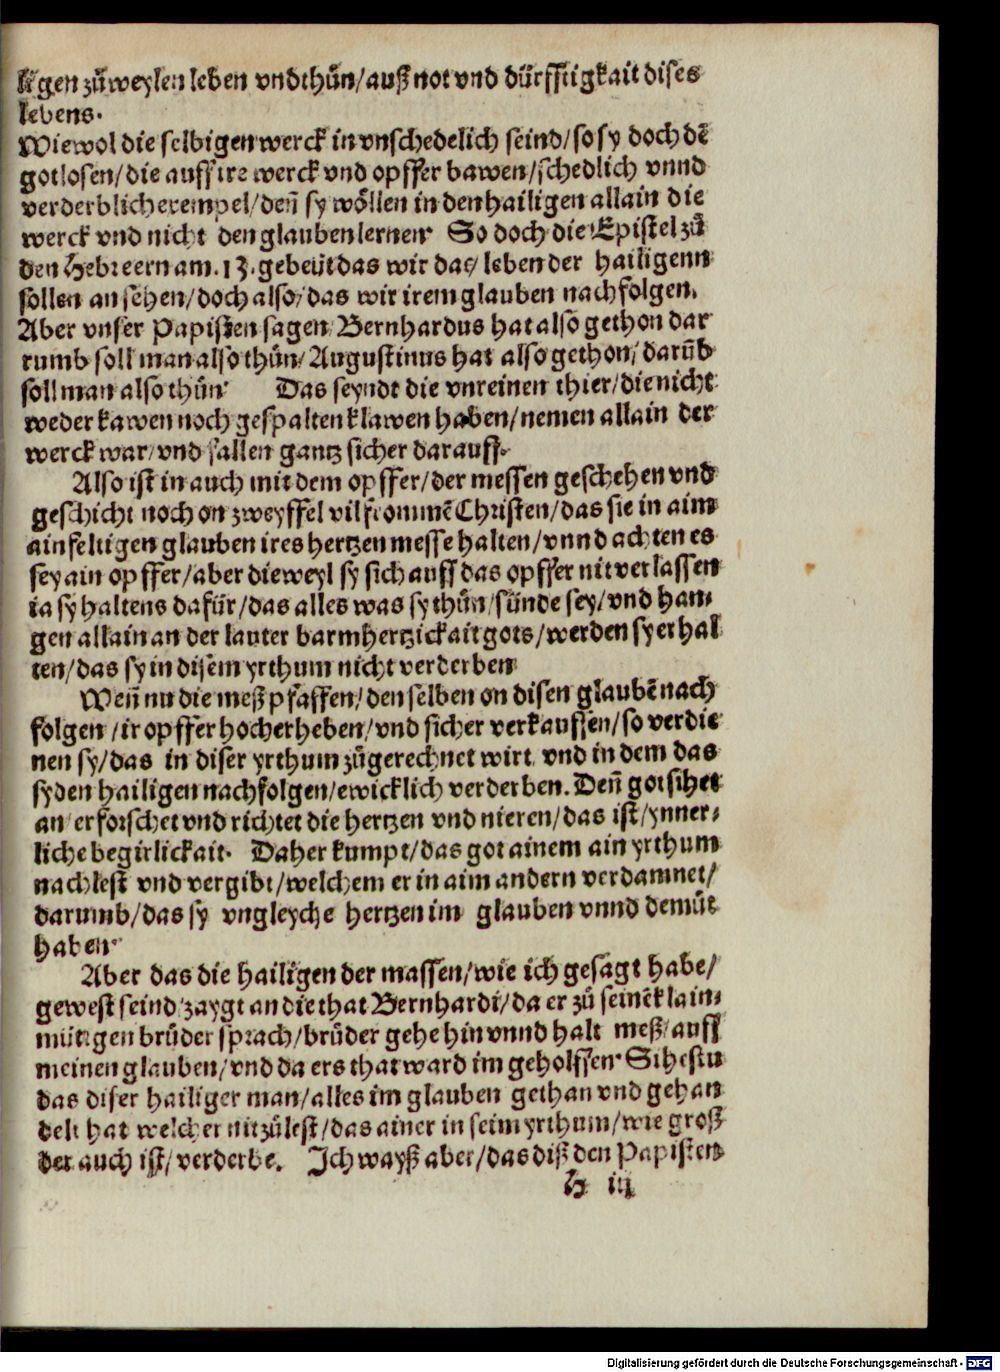 ligen zů weylen leben vnd thůn/auß not vnd dürfftigkait dises
lebens.
Wiewol die selbigen werck in vnschedelich seind/so sy doch dẽ
gotlosen/die auff ire werck vnd opffer bawen/schedlich vnnd
verderblich exempel/deñ sy wöllen in den hailigen allain die
werck vnd nicht den glauben lernen. So doch die Epistel zů
den Hebreern am. 13. gebeüt das wir das leben der hailigenn
sollen an sehen/doch also/das wir irem glauben nachfolgen.
Aber vnser Papisten sagen/Bernhardus hat also gethon dar
rumb soll man also thůn/Augustinus hat also gethon/darũb
soll man also thůn. Das seyndt die vnreinen thier/die nicht
weder kawen noch gespalten klawen haben/nemen allain der
werck war/vnd fallen gantz sicher darauff.
Also ist in auch mit dem opffer/der messen geschehen vnd
geschicht noch on zweyffel vil frommẽ Christen/das sie in aim
ainfeltigen glauben ires hertzen messe halten/vnnd achten es
sey ain opffer/aber dieweyl sy sich auff das opffer nit verlassen
ia sy haltens dafür/das alles was sy thůn/sünde sey/vnd han-
gen allain an der lauter barmhertzickait gots/werden sy erhal
ten/das sy in disem yrthum nicht verderben
Weñ nu die meß pfaffen/den selben on disen glaubẽ nach
folgen/ir opffer hocherheben/vnd sicher verkauffen/so verdie
nen sy/das in diser yrthum zůgerechnet wirt, vnd in dem das
sy den hailigen nachfolgen/ewicklich verderben. Deñ got sihet
an/erforschet vnd richtet die hertzen vnd nieren/das ist/ynner-
liche begirlickait. Daher kumpt/das got ainem ain yrthum
nachlest vnd vergibt/welchem er in aim andern verdamnet/
darumb/das sy vngleyche hertzen im glauben vnnd demůt
haben.
Aber das die hailigen der massen/wie ich gesagt habe/
gewest seind/zaygt an die that Bernhardi/da er zů seinẽ klain-
mütigen brůder sprach/brůder gehe hin vnnd halt meß/auff
meinen glauben/vnd da ers that ward im geholffen. Sihestu
das diser hailiger man/alles im glauben gethan vnd gehan
delt hat welcher nit zůlest/das ainer in seim yrthum/wie groß
der auch ist/verderbe. Ich wayß aber/das diß den Papisten
H iij
Digitalisierung gefördert durch die Deutsche Forschungsgemeinschaft - DFG